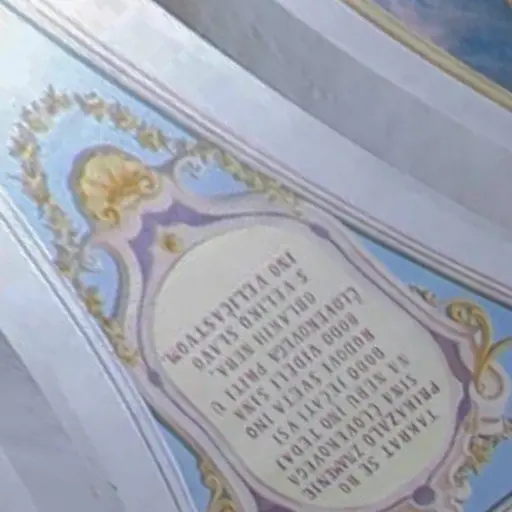 TAKRAT SE BO
PRIKAZALO ZNAMENJE
SINA ČLOVEKOVEGA
NA NEBU INO TEDAJ
BODO JEČALI VSI
RODOVI SVETA INO
BODO VIDELI SINA
ČLOVEKOVEGA PRITI U
OBLAKIH NEBA,
S VELIKO SLAVO
INO VELIČASTVOM.